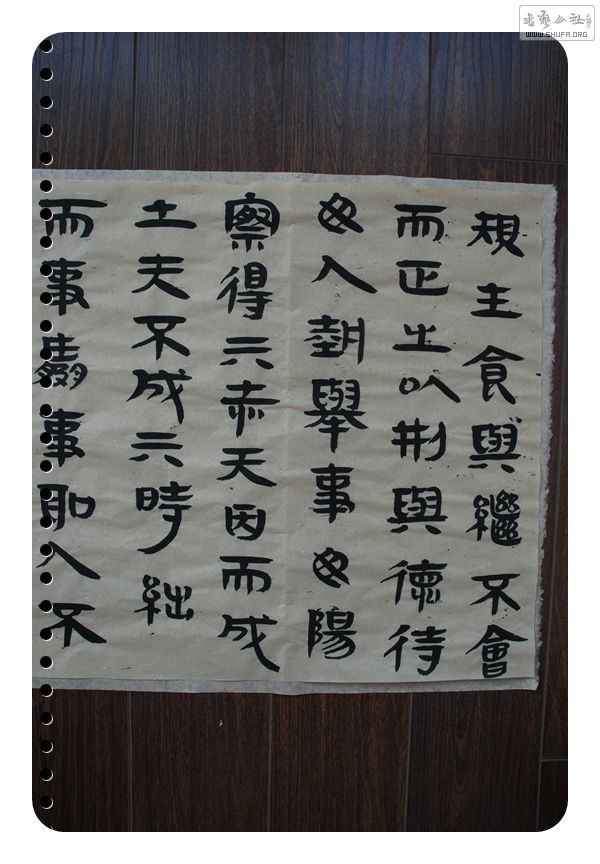 規主食與繼不會
而正之以刑與德待
毋人執舉事毋陽
察得亓赤天因而成
土夫不成亓時絀
而事事人不
書藝公社
WWW.SHUFA.ORG